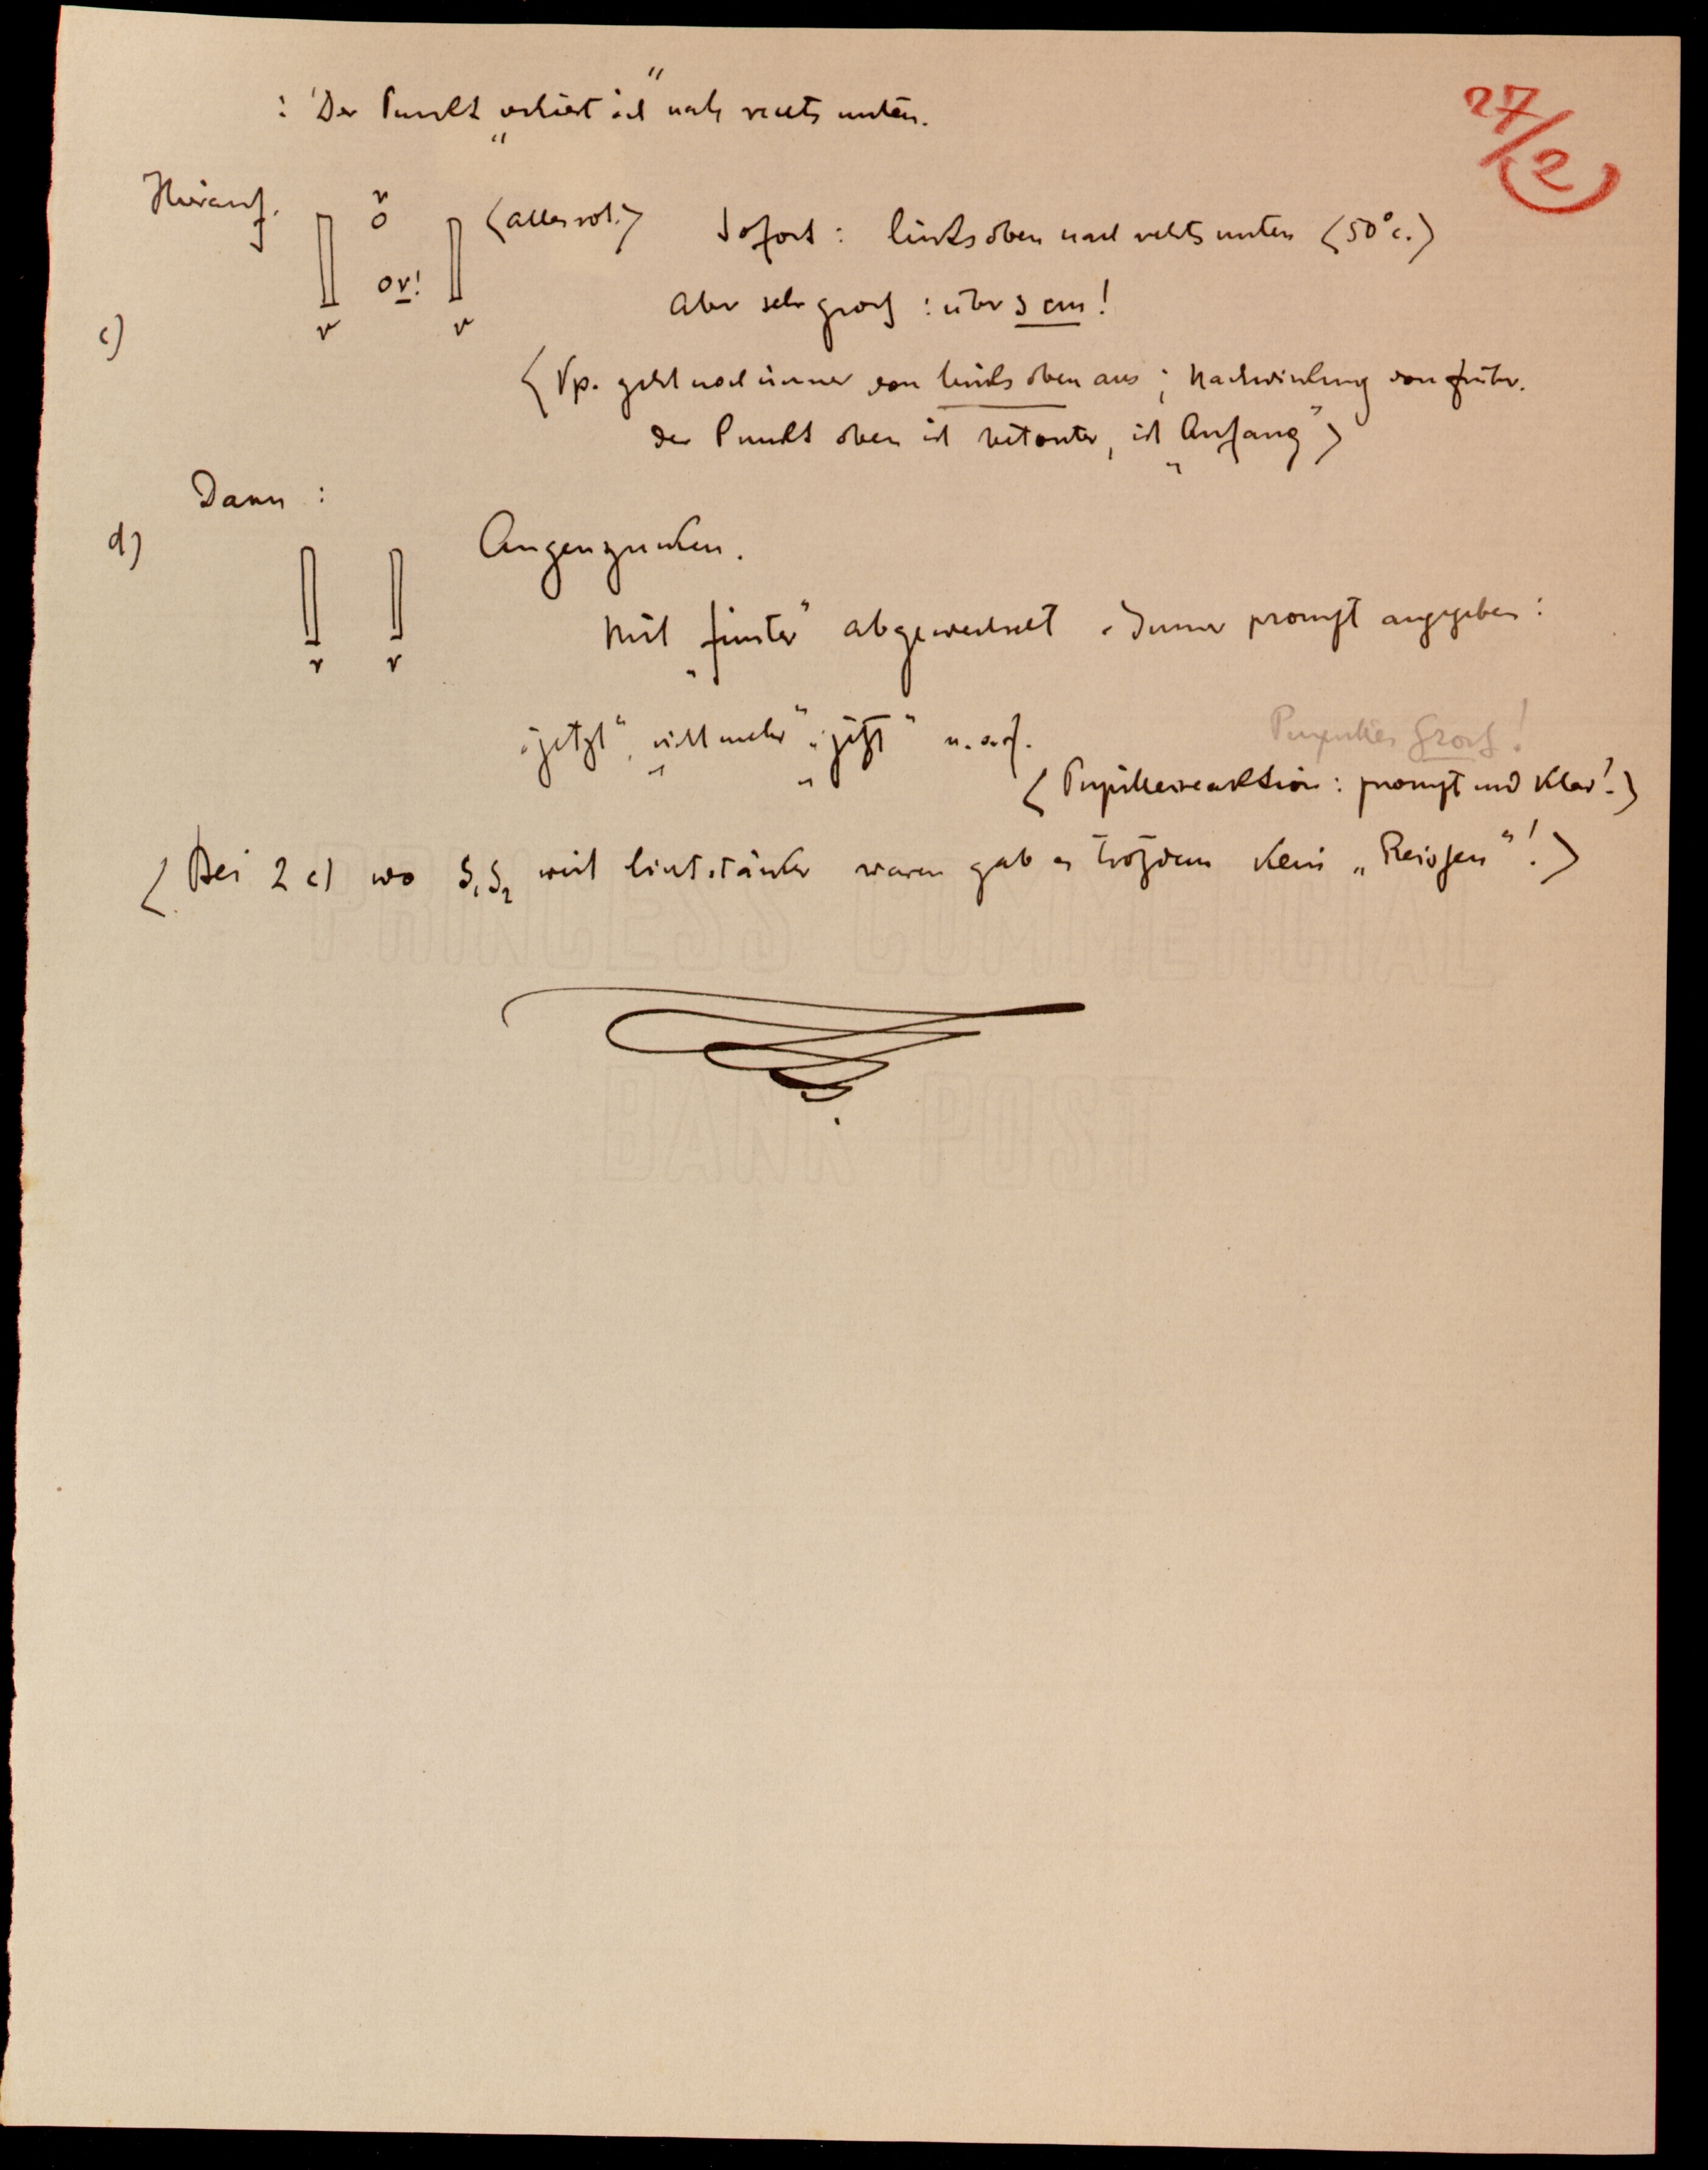 : Der Punkt „verliert sich“ nach rechts unten.
27/2
Hierauf.
r
o
<alles rot.>
Sofort: links oben nach rechts unten <50° c.>
o r!
r r
Aber sehr gross: über 3 cm!
c)
<Vp. geht noch immer von links oben aus; Nachwirkung von früher.
der Punkt oben ist betonter, ist „Anfang“>
Dann:
d)
Augenzwicken.
r r
Mit „finster“ abgewechselt. Immer prompt angegeben:
„jetzt“ „nicht mehr“ „jetzt“ u.s.f.
Pupillen gross!
<Pupillenreaktion: prompt und klar!>
<Bei 2 c) wo S1 S2 weit lichtstärker waren gab es trotzdem kein „Reissen“!>
PRINCESS COMMERCIAL
BANK POST